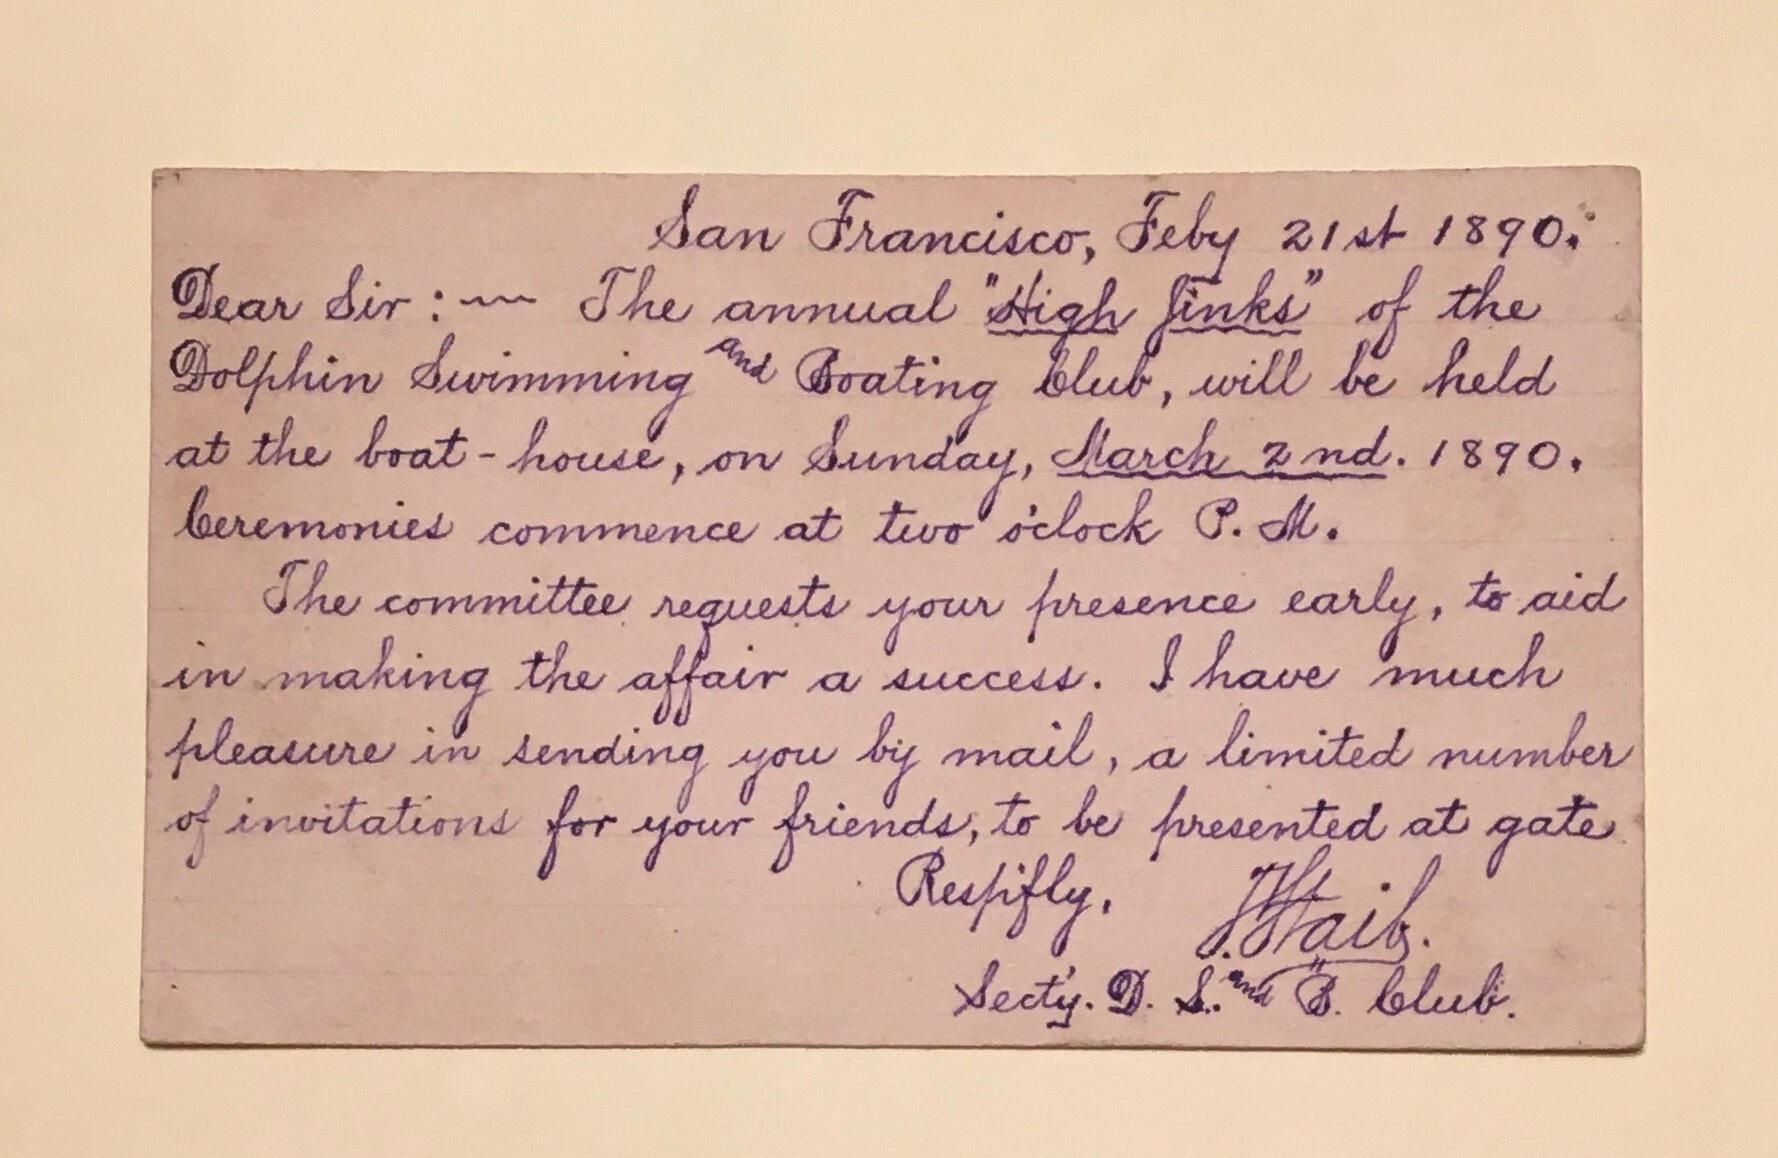 San Francisco, Feby 21st 1890.
Dear Sir :~ The annual "High Jinks" of the
Dolphin Swimming and Boating Club, will be held
at the boat-house, on Sunday, March 2nd. 1890.
Ceremonies commence at two o'clock P. M.
The committee requests your presence early, to aid
in making the affair a success. I have much
pleasure in sending you by mail, a limited number
of invitations for your friends, to be presented at gate
Respffly,
Sect'y. D. S. and B. Club.